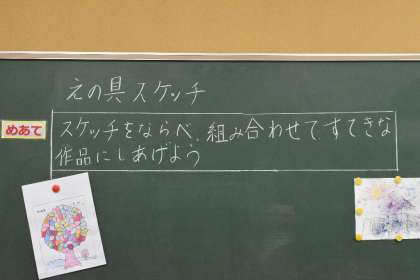 えの具スケッチ
めあて
スケッチをならべ、組み合わせて、すてきな
作品にしあげよう